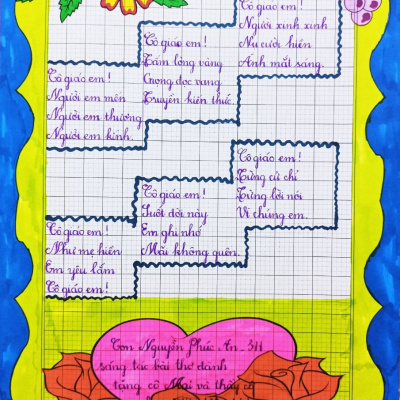 Cô giáo em!
Người em mến
Người em thương
Người em kính.
Cô giáo em!
Tấm lòng vàng
Giọng đọc vang
Truyền kiến thức.
Cô giáo em!
Người xinh xinh
Nụ cười hiền
Ánh mắt sáng.
Cô giáo em!
Như mẹ hiền
Em yêu lắm
Cô giáo em!
Cô giáo em!
Suốt đời này
Em ghi nhớ
Mãi không quên.
Cô giáo em!
Từng cử chỉ
Từng lời nói
Vì chúng em.
Con Nguyễn Phúc An - 3/1
sáng tác bài thơ dành
tặng cô Mai và thầy cô